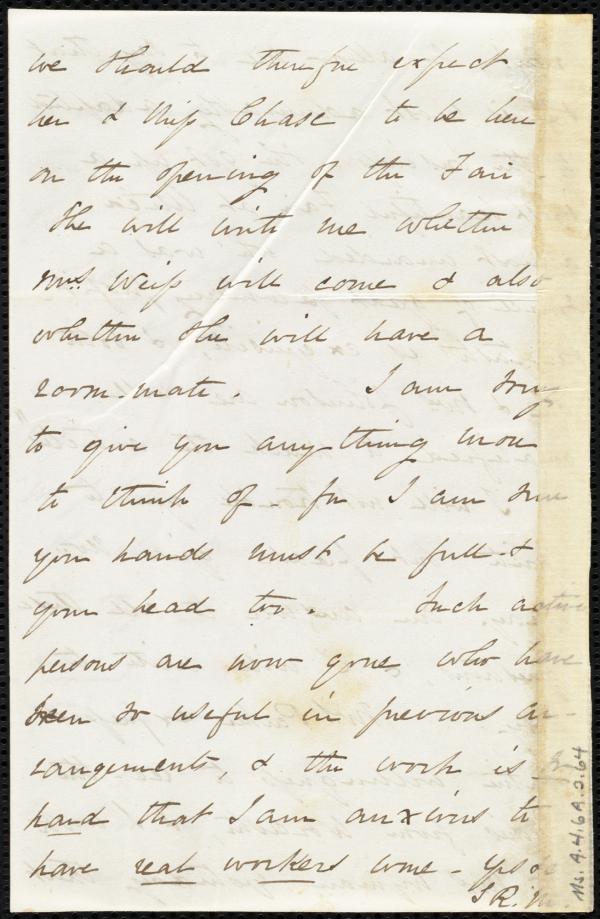 we should therefore expect
her & Miss Chase to be here
on the opening of the Fair -
She will write me whether
Mrs. Weiss will come & also
whether she will have a
room-mate. I am sorry
to give you anything more
to think of - for I am sure
your hands must be full &
your head too. Such active
persons are now gone who have
been so useful in previous ar-
rangements, & the work is so
hard that I am anxious to
have real workers come -
S R. M.
Ms. A.4.6A.3.64